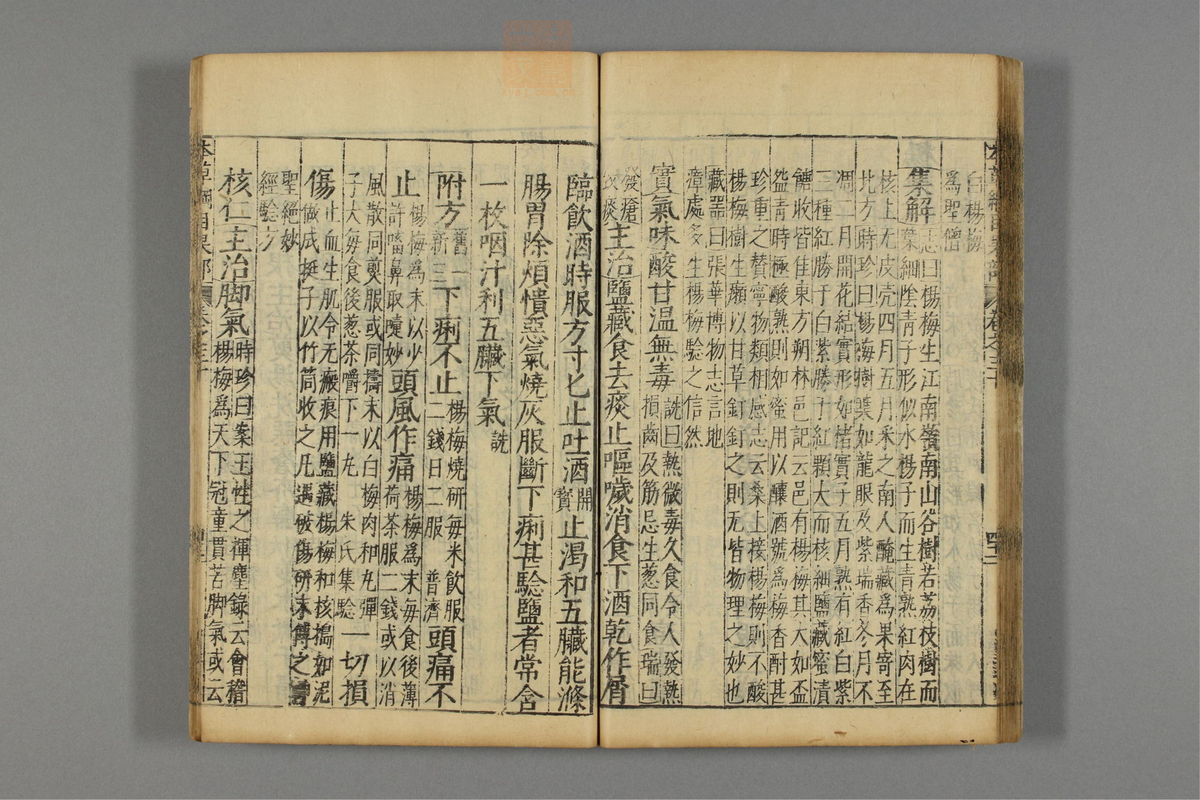 白楊梅
爲聖僧
集解志曰楊梅生江南嶺南山谷樹若荔枝樹而
葉細陰青子形似水楊子而生青熟紅肉在
核上无皮壳四月五月采之南人醃藏爲果寄至
北方時珍曰楊梅樹葉如龍眼及紫瑞香冬月不
凋二月開花結實形如楮實子五月熟有紅白紫
三種紅勝于白紫勝于紅顆大而核細鹽藏蜜漬
糖收皆佳東方朔林邑記云邑有楊梅其大如盃
盌青時極酸熟則如蜜用以釀酒號爲梅香酎甚
珍重之贊寧物類相感志云桑上接楊梅則不酸
楊梅樹生癩以甘草釘釘之則无皆物理之妙也
藏器曰張華博物志言地
瘴處多生楊梅驗之信然
實氣味酸甘温無毒詵曰熱微毒久食令人發熱
損齒及筋忌生葱同食瑞曰
發瘡
致痰主治鹽藏食去痰止嘔噦消食下酒乾作屑
臨飲酒時服方寸匕止吐酒開
寶止渴和五臟能滌
腸胃除煩憒惡氣燒灰服斷下痢甚驗鹽者常含
一枚咽汁利五臟下氣詵
附方舊一
新三下痢不止楊梅燒研每米飲服
二錢日二服 普濟頭痛不
止楊梅爲末以少
許㗜鼻取嚏妙頭風作痛楊梅爲末每食後薄
荷茶服二錢或以消
風散同煎服或同擣末以白梅肉和丸彈
子大每食後葱茶嚼下一丸 朱氏集驗一切損
傷止血生肌令无瘢痕用鹽藏楊梅和核搗如泥
做成挺子以竹筒收之凡遇破傷研末傅之
聖絕妙
經驗方
核仁主治脚氣時珍曰案王性之揮麈錄云會稽
楊梅爲天下冠童貫苦脚氣或云